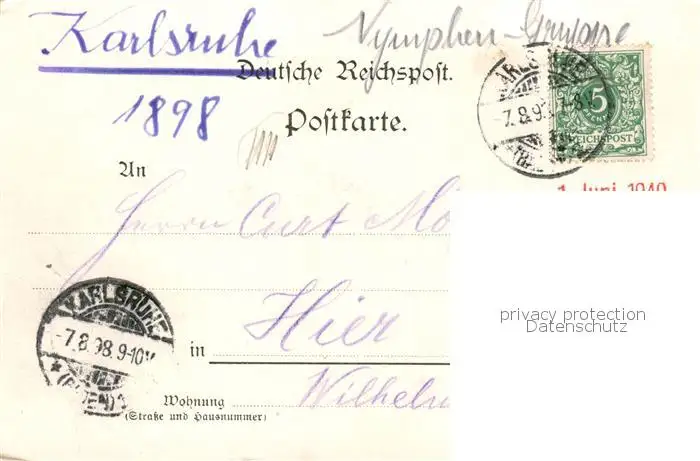 Karlsruhe Nymphen-Gruppe
Deutsche Reichspost.
1898
Postkarte.
KARLSRUHE
-7.8.98. 7-8V
(BADEN)
5
REICHSPOST
An
1. Juni 1940
Herrn Curt
Hier
in
KARLSRUHE
-7.8.98.9-10V.
*(BADEN)
privacy protection
Datenschutz
Wohnung
(Straße und Hausnummer)